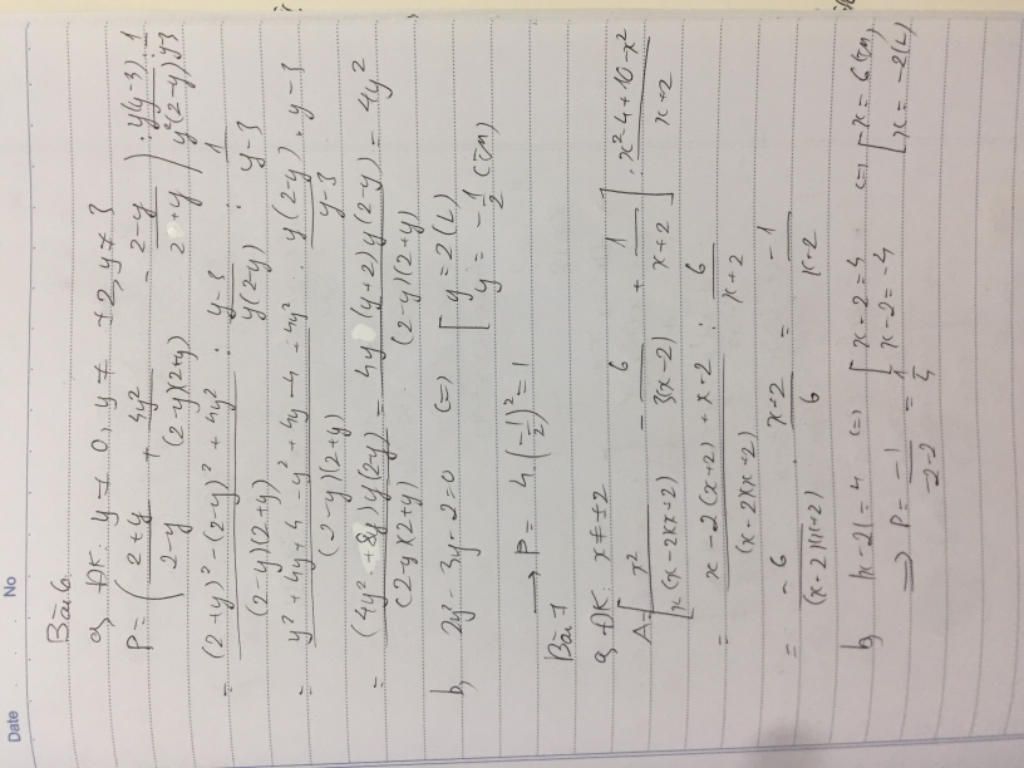 Date No
Bài 6.
a, ĐK: y ≠ 0, y ≠ ±2, y ≠ 3
P = ( (2+y)/(2-y) + 4y²/((2-y)(2+y)) - (2-y)/(2+y) ) : y(y-3)/(y²(2-y))
= ((2+y)² - (2-y)² + 4y²)/((2-y)(2+y)) : (y-3)/(y(2-y))
= (y² + 4y + 4 - y² + 4y - 4 + 4y²)/((2-y)(2+y)) . y(2-y)/(y-3)
= (4y² + 8y)y(2-y)/((2-y)(2+y)) = 4y(y+2)y(2-y)/((2-y)(2+y)) = 4y²
b, 2y² - 3y - 2 = 0 <=> [ y = 2 (L)
y = -1/2 (TM)
→ P = 4(-1/2)² = 1
Bài 7
a, ĐK: x ≠ ±2
A = [ x²/(x(x-2)(x+2)) - 6/(3(x-2)) + 1/(x+2) ] : (x²-4+10-x²)/(x+2)
= (x - 2(x+2) + x - 2)/((x-2)(x+2)) : 6/(x+2)
= -6/((x-2)(x+2)) . (x+2)/6 = -1/(x-2)
b, |x-2| = 4 <=> [ x-2 = 4 <=> [ x = 6 (TM)
x-2 = -4 x = -2 (L)
=> P = -1/(-2-2) = 1/4